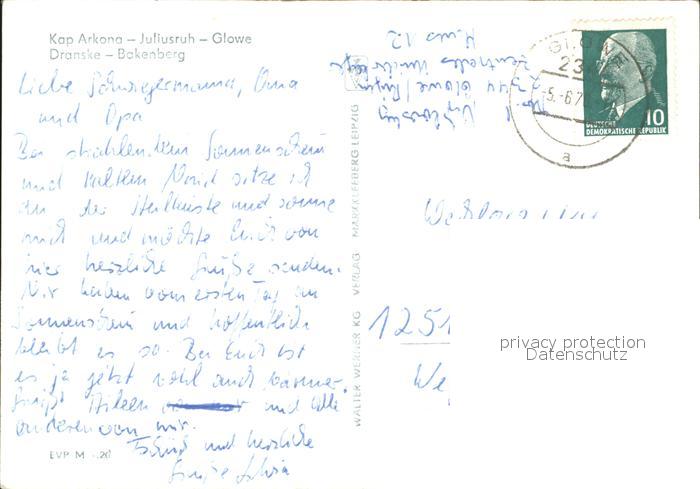 Kap Arkona – Juliusruh – Glowe
Dranske – Bakenberg
Liebe Schwiegermama, Oma
und Opa
Bei strahlendem Sonnenschein
und kaltem Wind sitze ich
an der Steilküste und sonne
mich und möchte Euch von
hier herzliche Grüße senden.
Wir haben vom ersten Tag an
Sonnenschein und hoffentlich
bleibt es so. Bei Euch ist
es ja jetzt wohl auch wärmer.
Grüßt und alle
anderen von mir.
Tschüß und herzliche
Grüße
EVP M -.20
WALTER WERNER KG VERLAG MARKKLEEBERG-LEIPZIG
2344 Glowe/Rügen
Zentrales
Haus 12
GLOWE
23
-5.-6.7
a
10
DEUTSCHE
DEMOKRATISCHE REPUBLIK
1251
privacy protection
Datenschutz